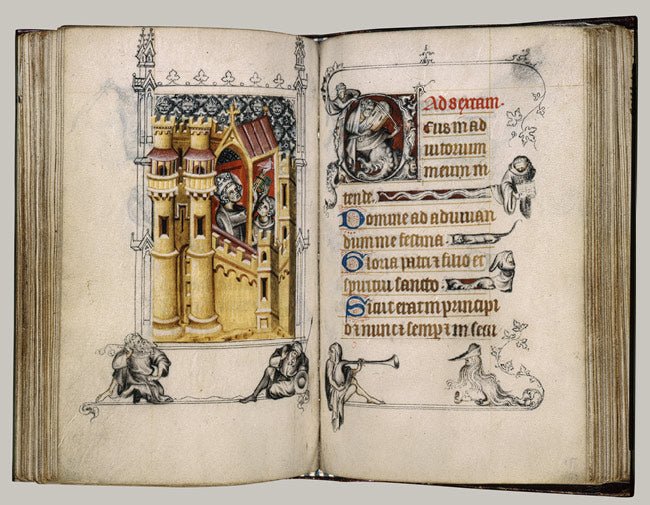 Ad sextam.
Deus in ad
iutorium
meum in
tende.
Domine ad adiuuan
dum me festina.
Gloria patri ⁊ filio et
spiritui sancto.
Sicut erat in principi
o ⁊ nunc ⁊ semꝑ ⁊ in secu